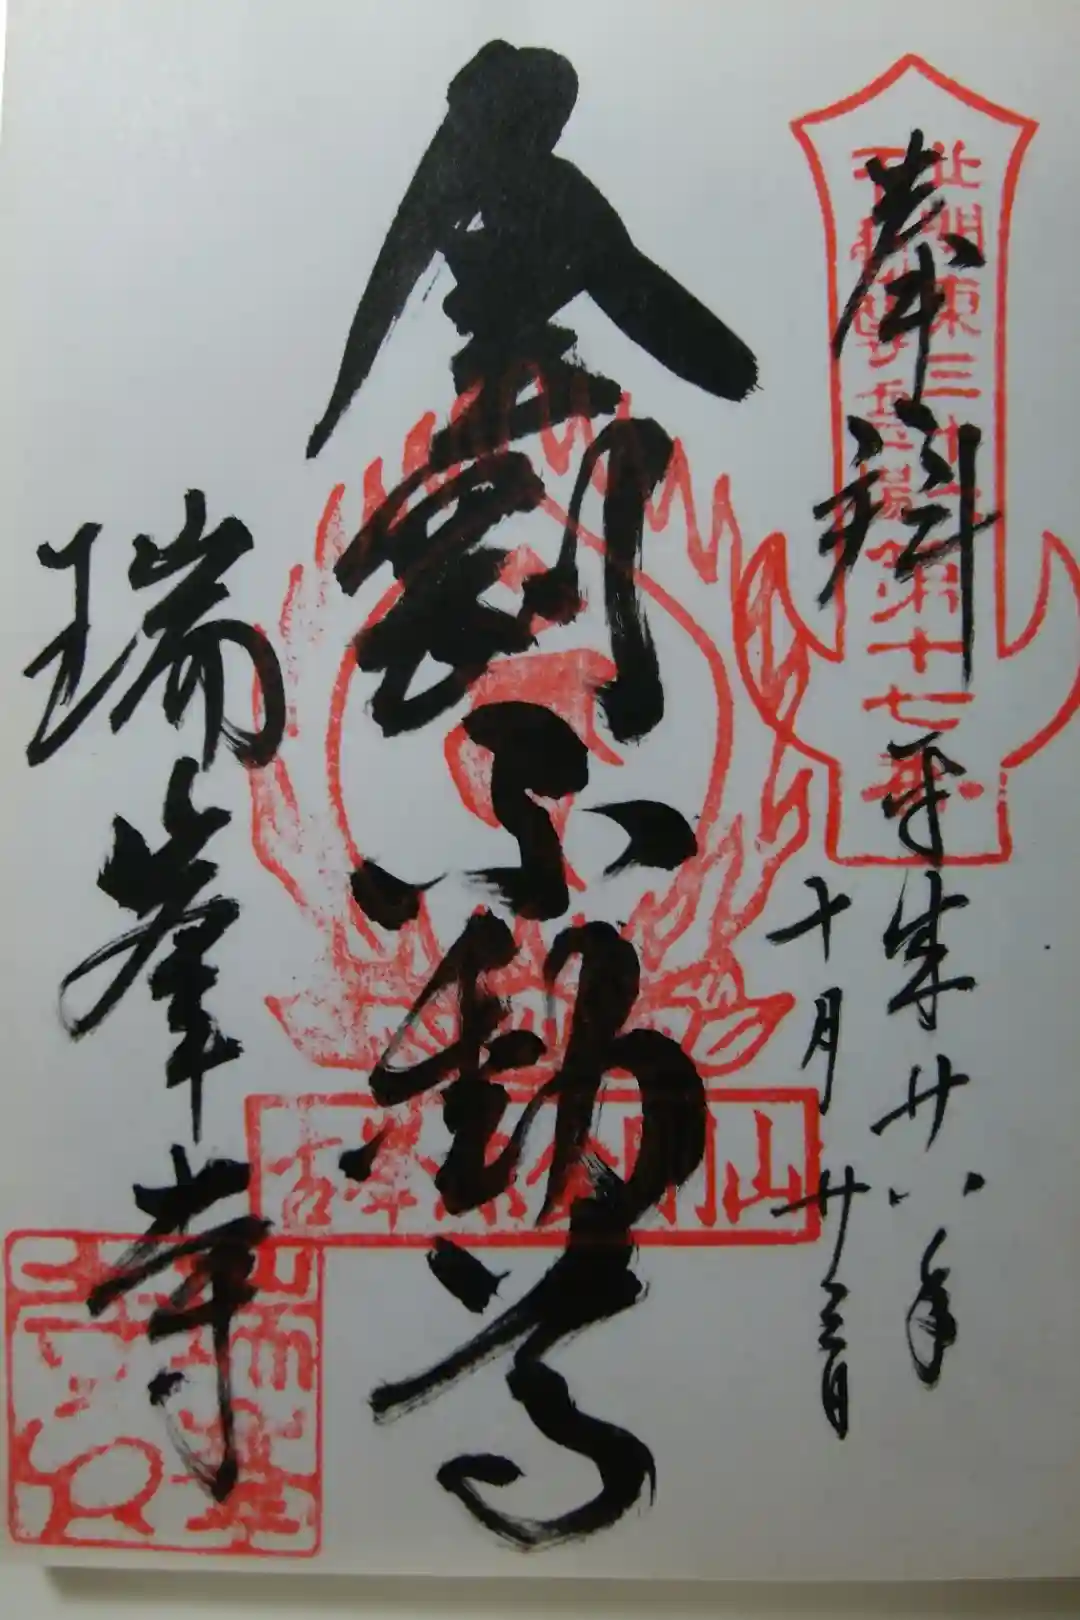 奉拝
平成廿八年
十月廿三日
北関東三十六
不動尊霊場第十七番
金剛不動尊
瑞峯寺